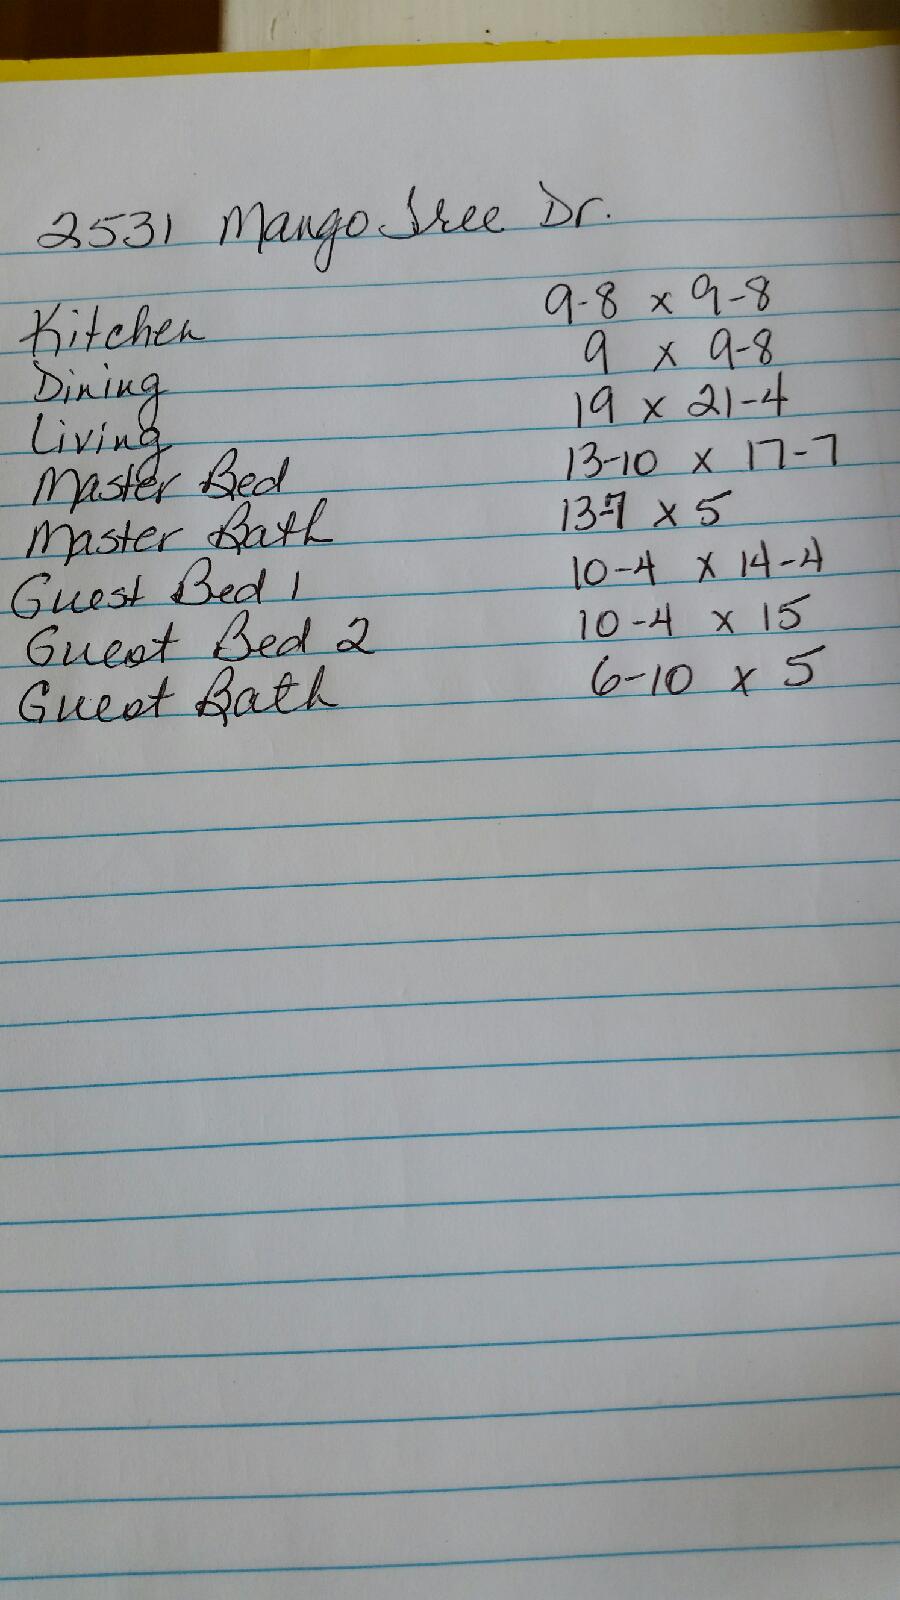 2531 Mango Tree Dr.
Kitchen 9-8 x 9-8
Dining 9 x 9-8
Living 19 x 21-4
Master Bed 13-10 x 17-7
Master Bath 13-7 x 5
Guest Bed 1 10-4 x 14-4
Guest Bed 2 10-4 x 15
Guest Bath 6-10 x 5